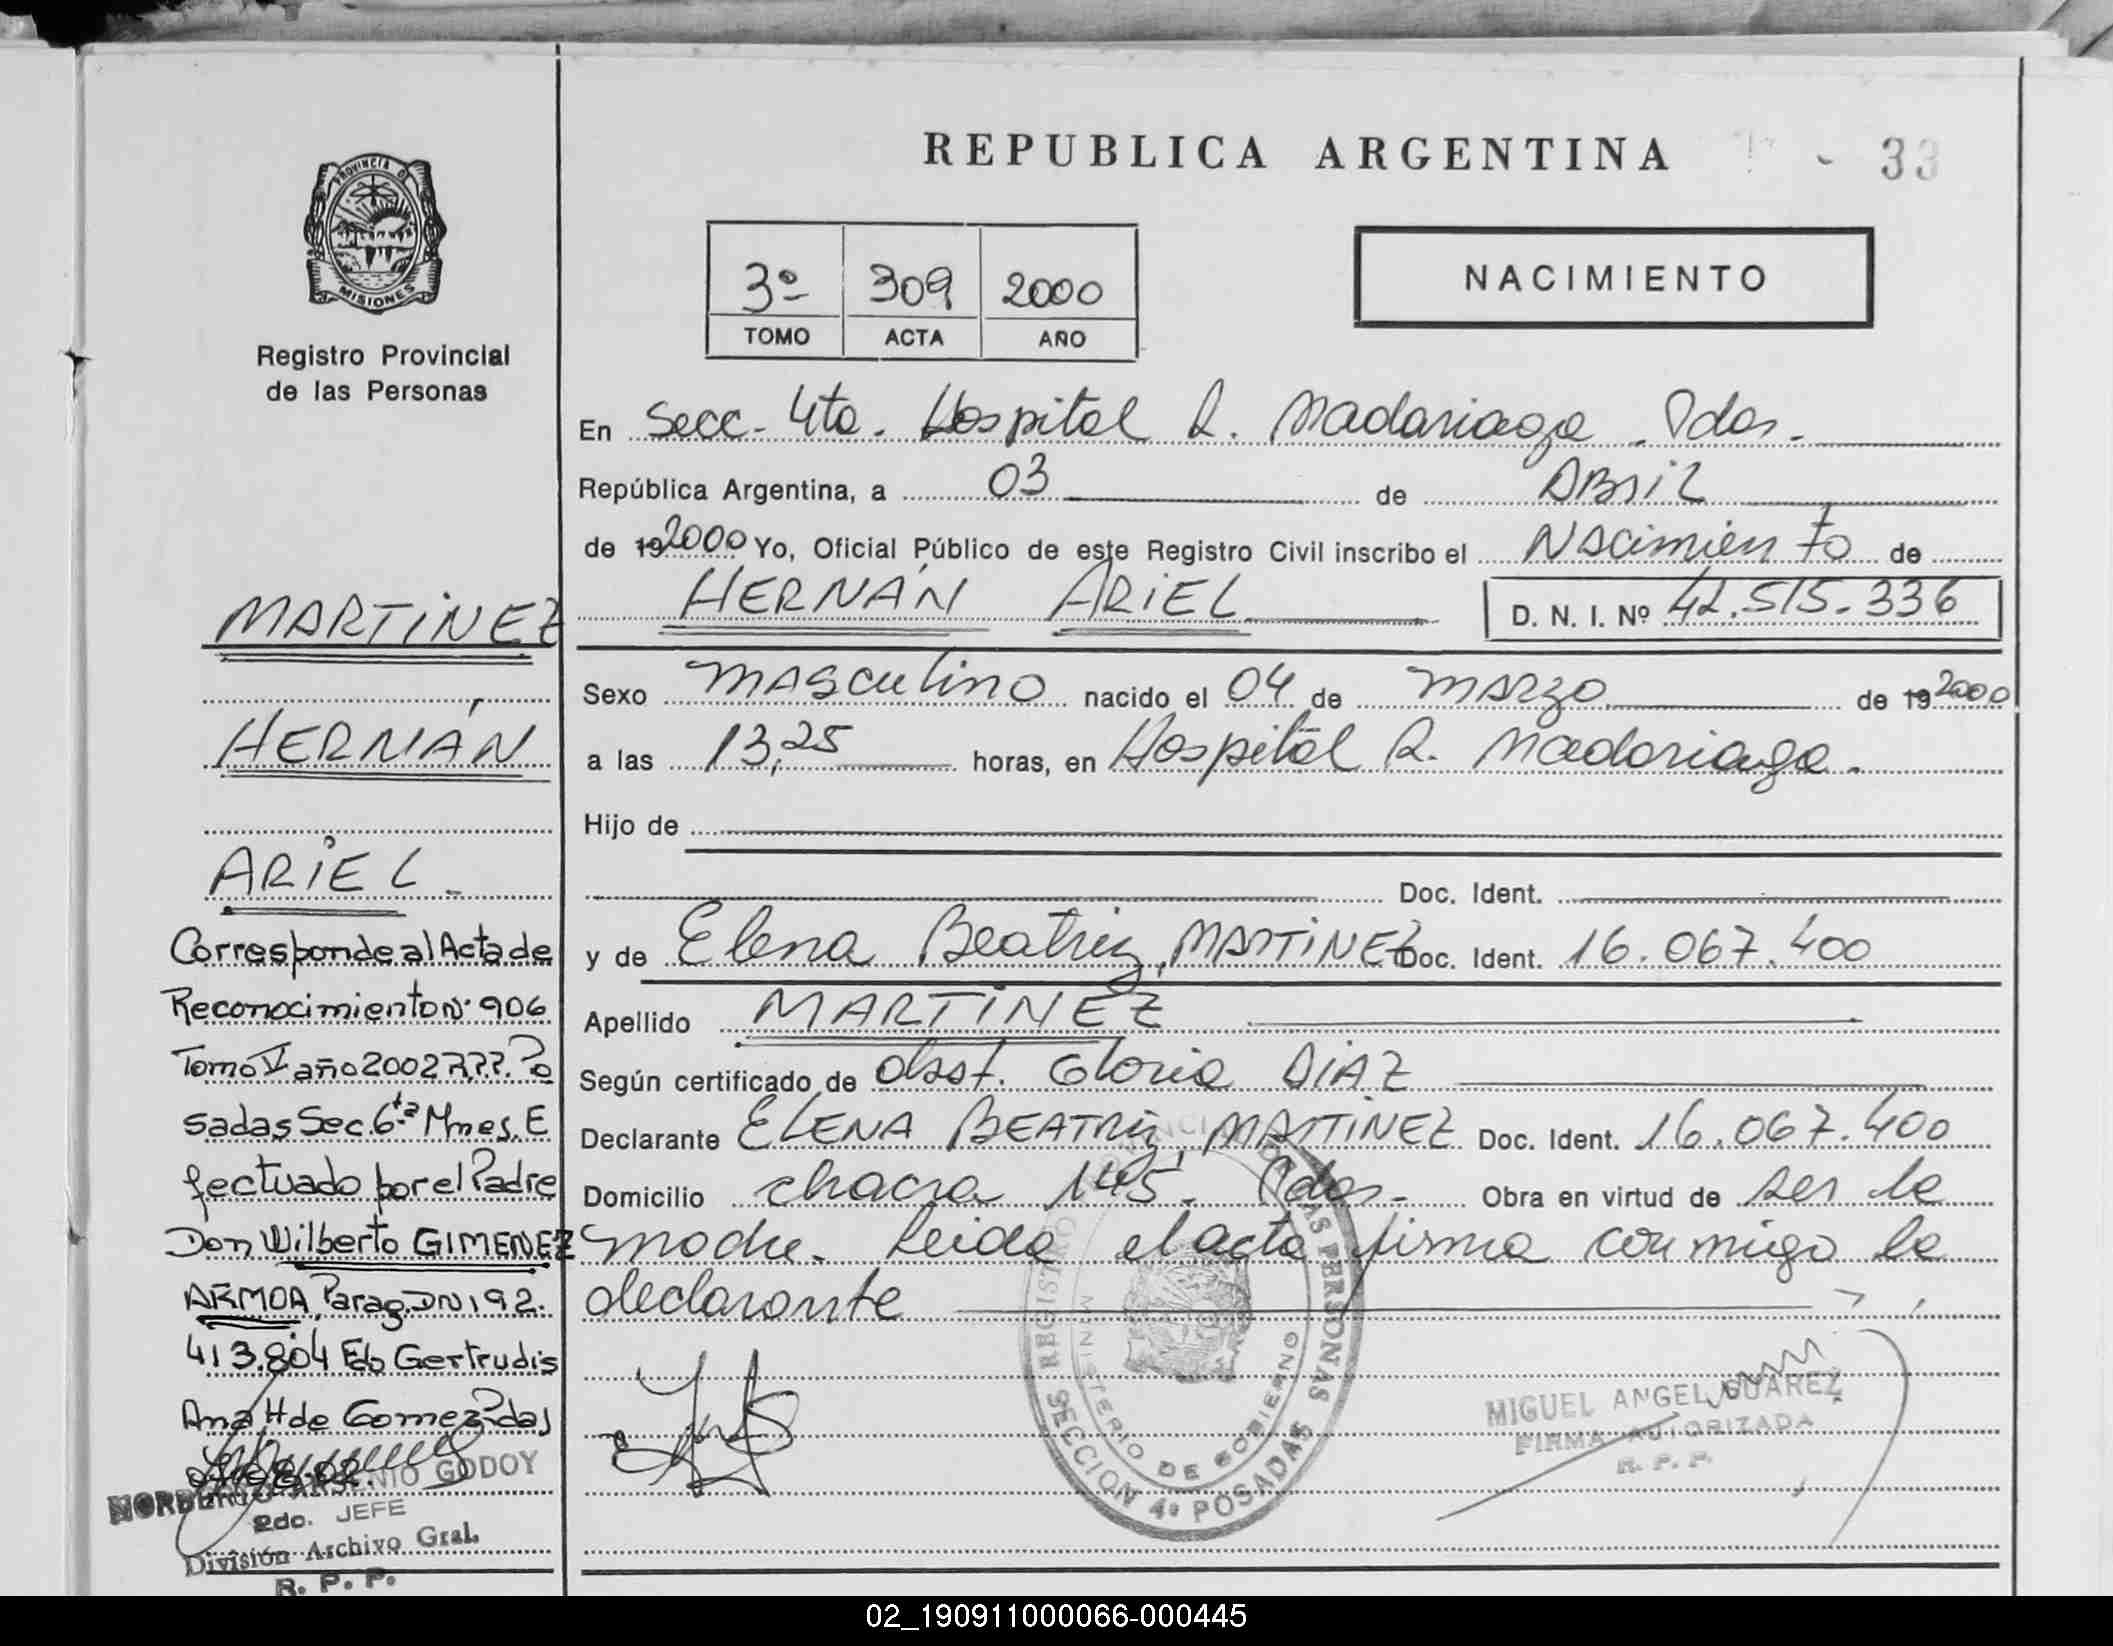 REPUBLICA ARGENTINA
33
PROVINCIA D
MISIONES
Registro Provincial
de las Personas
3º 309 2000
TOMO ACTA AÑO
NACIMIENTO
En Secc. 4ta. Hospital R. Madariaga. Pdas.
República Argentina, a 03 de Abril
de 19 2000 Yo, Oficial Público de este Registro Civil inscribo el Nacimiento de
HERNÁN ARIEL D. N. I. Nº 42.515.336
Sexo Masculino nacido el 04 de Marzo de 19 2000
a las 13,25 horas, en Hospital R. Madariaga.
Hijo de
Doc. Ident.
y de Elena Beatriz, MARTINEZ Doc. Ident. 16.067.400
Apellido MARTINEZ
Según certificado de Obst. Gloria DIAZ
Declarante ELENA BEATRIZ, MARTINEZ Doc. Ident. 16.067.400
Domicilio chacra 145. Pdas. Obra en virtud de ser la
madre. Leida el acta firma conmigo la
declarante
MARTINEZ
HERNÁN
ARIEL.
Corresponde al Acta de
Reconocimiento Nº 906
Tomo V año 2002 R.P.P. Po
sadas Sec. 6ta Mnes. E
fectuado por el Padre
Don Wilberto GIMENEZ
ARMOA, Parag. DNI 92.
413.804 Fdo Gertrudis
Ana H de Gomez Pdas
GODOY
2do. JEFE
División Archivo Gral.
R. P. P.
REGISTRO PROVINCIAL DE LAS PERSONAS
MINISTERIO DE GOBIERNO
SECCION 4ª POSADAS
MIGUEL ANGEL SUAREZ
FIRMA AUTORIZADA
R. P. P.
02_190911000066-000445